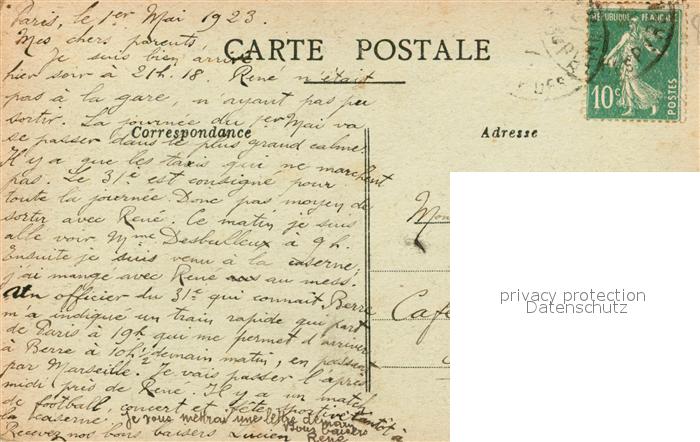 Paris, le 1er Mai 1923.
Mes chers parents,
Je suis bien arrivé
hier soir à 21h.18. René n'était
pas à la gare, n'ayant pas pu
sortir. La journée du 1er Mai va
se passer dans le plus grand calme
Il y a que les taxis qui ne marchent
pas. Le 31e est consigné pour
toute la journée. Donc pas moyen de
sortir avec René. Ce matin je suis
allé voir Mme Desbulleux à 9h.
Ensuite je suis venu à la caserne;
j'ai mangé avec René au mess.
Un officier du 31e qui connait Berre
m'a indiqué un train rapide qui part
de Paris à 19h que me permet d'arriver
à Berre à 10h½ demain matin, en passant
par Marseille. Je vais passer l'après
midi près de René. Il y a un match
de football, concert et fête sportive tantôt à
la caserne. Je vous mettrai une lettre demain
Recevez nos bons baisers Lucien
Bons baisers
René
CARTE POSTALE
Correspondance
Adresse
RÉPUBLIQUE FRANÇAISE
10c
POSTES
Café
privacy protection
Datenschutz